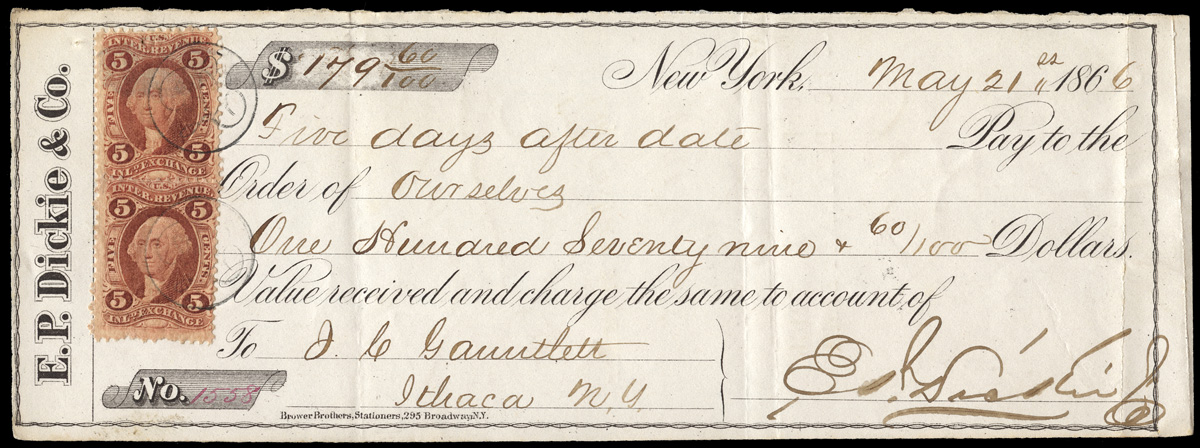 E. P. Dickie & Co.
U.S.
INTER. REVENUE
5 5
FIVE CENTS.
5 5
INL. EXCHANGE
U.S.
INTER. REVENUE
5 5
FIVE CENTS.
5 5
INL. EXCHANGE
$ 179 60/100
New York, May 21 st 1866
Five days after date Pay to the
Order of Ourselves
One Hundred Seventy nine & 60/100 Dollars.
Value received and charge the same to account of
To J. C. Gauntlett
Ithaca N.Y.
E. P. Dickie & Co
No. 1538
Brower Brothers, Stationers, 295 Broadway, N.Y.